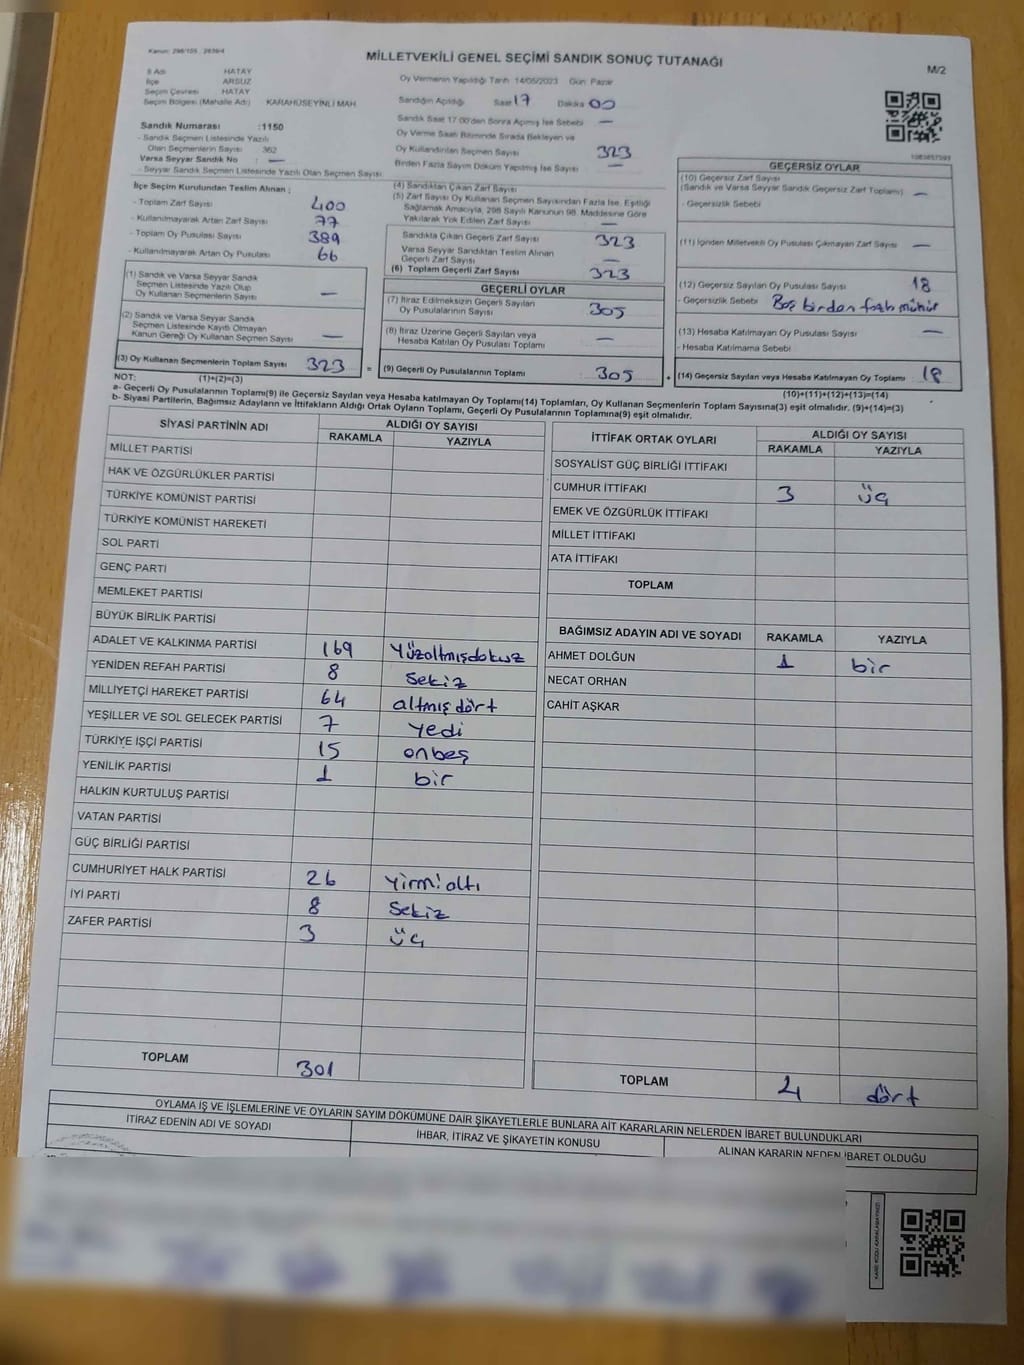 Kanun: 298/105 2839/4
MİLLETVEKİLİ GENEL SEÇİMİ SANDIK SONUÇ TUTANAĞI
M/2
İl Adı HATAY
İlçe ARSUZ
Seçim Çevresi HATAY
Seçim Bölgesi (Mahalle Adı) KARAHÜSEYİNLİ MAH.
Oy Vermenin Yapıldığı Tarih 14/05/2023 Gün Pazar
Sandığın Açıldığı Saat 17 Dakika 00
Sandık Saat 17:00'den Sonra Açılmış İse Sebebi —
Oy Verme Saati Bitiminde Sırada Bekleyen ve
Oy Kullandırılan Seçmen Sayısı 323
Birden Fazla Sayım Döküm Yapılmış İse Sayısı —
Sandık Numarası :1150
- Sandık Seçmen Listesinde Yazılı
Olan Seçmenlerin Sayısı 362
Varsa Seyyar Sandık No : —
- Seyyar Sandık Seçmen Listesinde Yazılı Olan Seçmen Sayısı
İlçe Seçim Kurulundan Teslim Alınan ;
- Toplam Zarf Sayısı 400
- Kullanılmayarak Artan Zarf Sayısı 77
- Toplam Oy Pusulası Sayısı 389
- Kullanılmayarak Artan Oy Pusulası 66
(1) Sandık ve Varsa Seyyar Sandık
Seçmen Listesinde Yazılı Olup
Oy Kullanan Seçmenlerin Sayısı —
(2) Sandık ve Varsa Seyyar Sandık
Seçmen Listesinde Kayıtlı Olmayan
Kanun Gereği Oy Kullanan Seçmen Sayısı —
(3) Oy Kullanan Seçmenlerin Toplam Sayısı 323 =
(4) Sandıktan Çıkan Zarf Sayısı
(5) Zarf Sayısı Oy Kullanan Seçmen Sayısından Fazla İse, Eşitliği
Sağlamak Amacıyla, 298 Sayılı Kanunun 98. Maddesine Göre
Yakılarak Yok Edilen Zarf Sayısı —
Sandıkta Çıkan Geçerli Zarf Sayısı 323
Varsa Seyyar Sandıktan Teslim Alınan
Geçerli Zarf Sayısı —
(6) Toplam Geçerli Zarf Sayısı 323
GEÇERLİ OYLAR
(7) İtiraz Edilmeksizin Geçerli Sayılan
Oy Pusulalarının Sayısı 305
(8) İtiraz Üzerine Geçerli Sayılan veya
Hesaba Katılan Oy Pusulası Toplamı —
(9) Geçerli Oy Pusulalarının Toplamı 305 +
1083857593
GEÇERSİZ OYLAR
(10) Geçersiz Zarf Sayısı
(Sandık ve Varsa Seyyar Sandık Geçersiz Zarf Toplamı) —
- Geçersizlik Sebebi
(11) İçinden Milletvekili Oy Pusulası Çıkmayan Zarf Sayısı —
(12) Geçersiz Sayılan Oy Pusulası Sayısı 18
- Geçersizlik Sebebi Boş birden fazla mühür
(13) Hesaba Katılmayan Oy Pusulası Sayısı —
- Hesaba Katılmama Sebebi
(14) Geçersiz Sayılan veya Hesaba Katılmayan Oy Toplamı 18
NOT: (1)+(2)=(3) (10)+(11)+(12)+(13)=(14)
a- Geçerli Oy Pusulalarının Toplamı(9) ile Geçersiz Sayılan veya Hesaba katılmayan Oy Toplamı(14) Toplamları, Oy Kullanan Seçmenlerin Toplam Sayısına(3) eşit olmalıdır. (9)+(14)=(3)
b- Siyasi Partilerin, Bağımsız Adayların ve İttifakların Aldığı Ortak Oyların Toplamı, Geçerli Oy Pusulalarının Toplamına(9) eşit olmalıdır.
SİYASİ PARTİNİN ADI ALDIĞI OY SAYISI
RAKAMLA YAZIYLA
MİLLET PARTİSİ
HAK VE ÖZGÜRLÜKLER PARTİSİ
TÜRKİYE KOMÜNİST PARTİSİ
TÜRKİYE KOMÜNİST HAREKETİ
SOL PARTİ
GENÇ PARTİ
MEMLEKET PARTİSİ
BÜYÜK BİRLİK PARTİSİ
ADALET VE KALKINMA PARTİSİ 169 Yüzaltmışdokuz
YENİDEN REFAH PARTİSİ 8 Sekiz
MİLLİYETÇİ HAREKET PARTİSİ 64 altmış dört
YEŞİLLER VE SOL GELECEK PARTİSİ 7 yedi
TÜRKİYE İŞÇİ PARTİSİ 15 onbeş
YENİLİK PARTİSİ 1 bir
HALKIN KURTULUŞ PARTİSİ
VATAN PARTİSİ
GÜÇ BİRLİĞİ PARTİSİ
CUMHURİYET HALK PARTİSİ 26 Yirmialtı
İYİ PARTİ 8 Sekiz
ZAFER PARTİSİ 3 üç
TOPLAM 301
İTTİFAK ORTAK OYLARI ALDIĞI OY SAYISI
RAKAMLA YAZIYLA
SOSYALİST GÜÇ BİRLİĞİ İTTİFAKI
CUMHUR İTTİFAKI 3 üç
EMEK VE ÖZGÜRLÜK İTTİFAKI
MİLLET İTTİFAKI
ATA İTTİFAKI
TOPLAM
BAĞIMSIZ ADAYIN ADI VE SOYADI RAKAMLA YAZIYLA
AHMET DOLĞUN 1 bir
NECAT ORHAN
CAHİT AŞKAR
TOPLAM 4 dört
OYLAMA İŞ VE İŞLEMLERİNE VE OYLARIN SAYIM DÖKÜMÜNE DAİR ŞİKAYETLERLE BUNLARA AİT KARARLARIN NELERDEN İBARET BULUNDUKLARI
İTİRAZ EDENİN ADI VE SOYADI İHBAR, İTİRAZ VE ŞİKAYETİN KONUSU ALINAN KARARIN NEDEN İBARET OLDUĞU